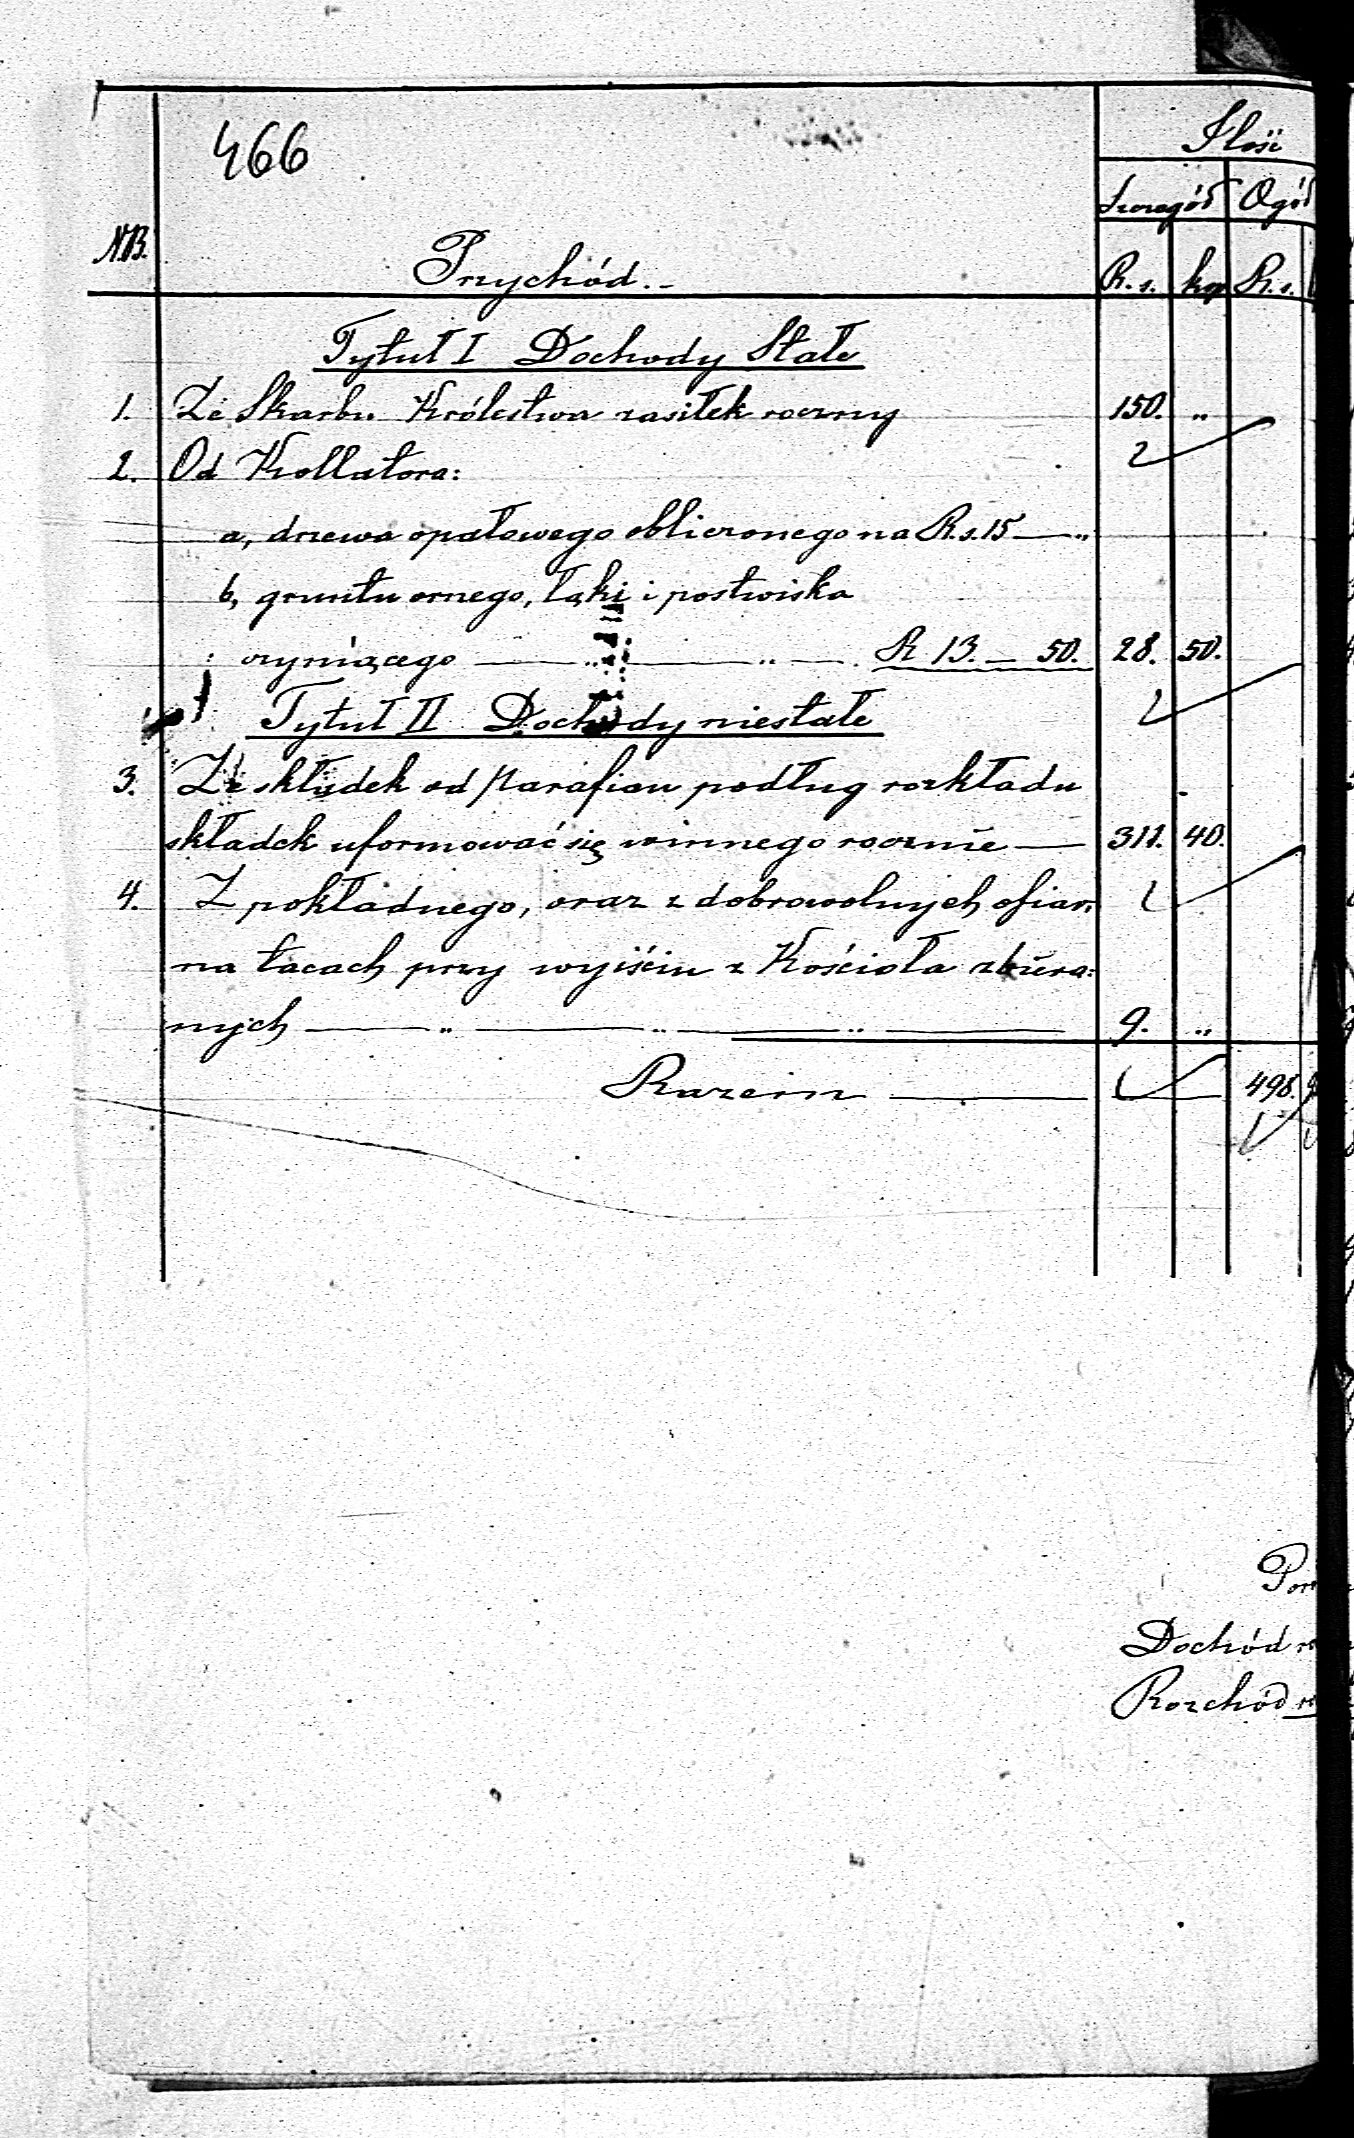 466
Ilość
Szczegół Ogół
N.B. Przychód.- R.s. kop R.s.
Tytuł I Dochody Stałe
1. Ze Skarbu Królestwa zasiłek roczny 150. "
2. Od Kollatora:
a, drzewa opałowego obliczonego na R.s. 15 — "
b, gruntu ornego, łąki i postwiska
czyniącego — " — " — R 13. — 50. 28. 50.
Tytuł II Dochody niestałe
3. Ze składek od Parafian podług rozkładu
składek uformować się winnego rocznie — 311. 40.
4. Z pokładnego, oraz z dobrowolnych ofiar,
na tacach przy wyiściu z Kościoła zbiera:
nych — " — " — " — 9. "
Razem — 498.
Dochód
Rozchód